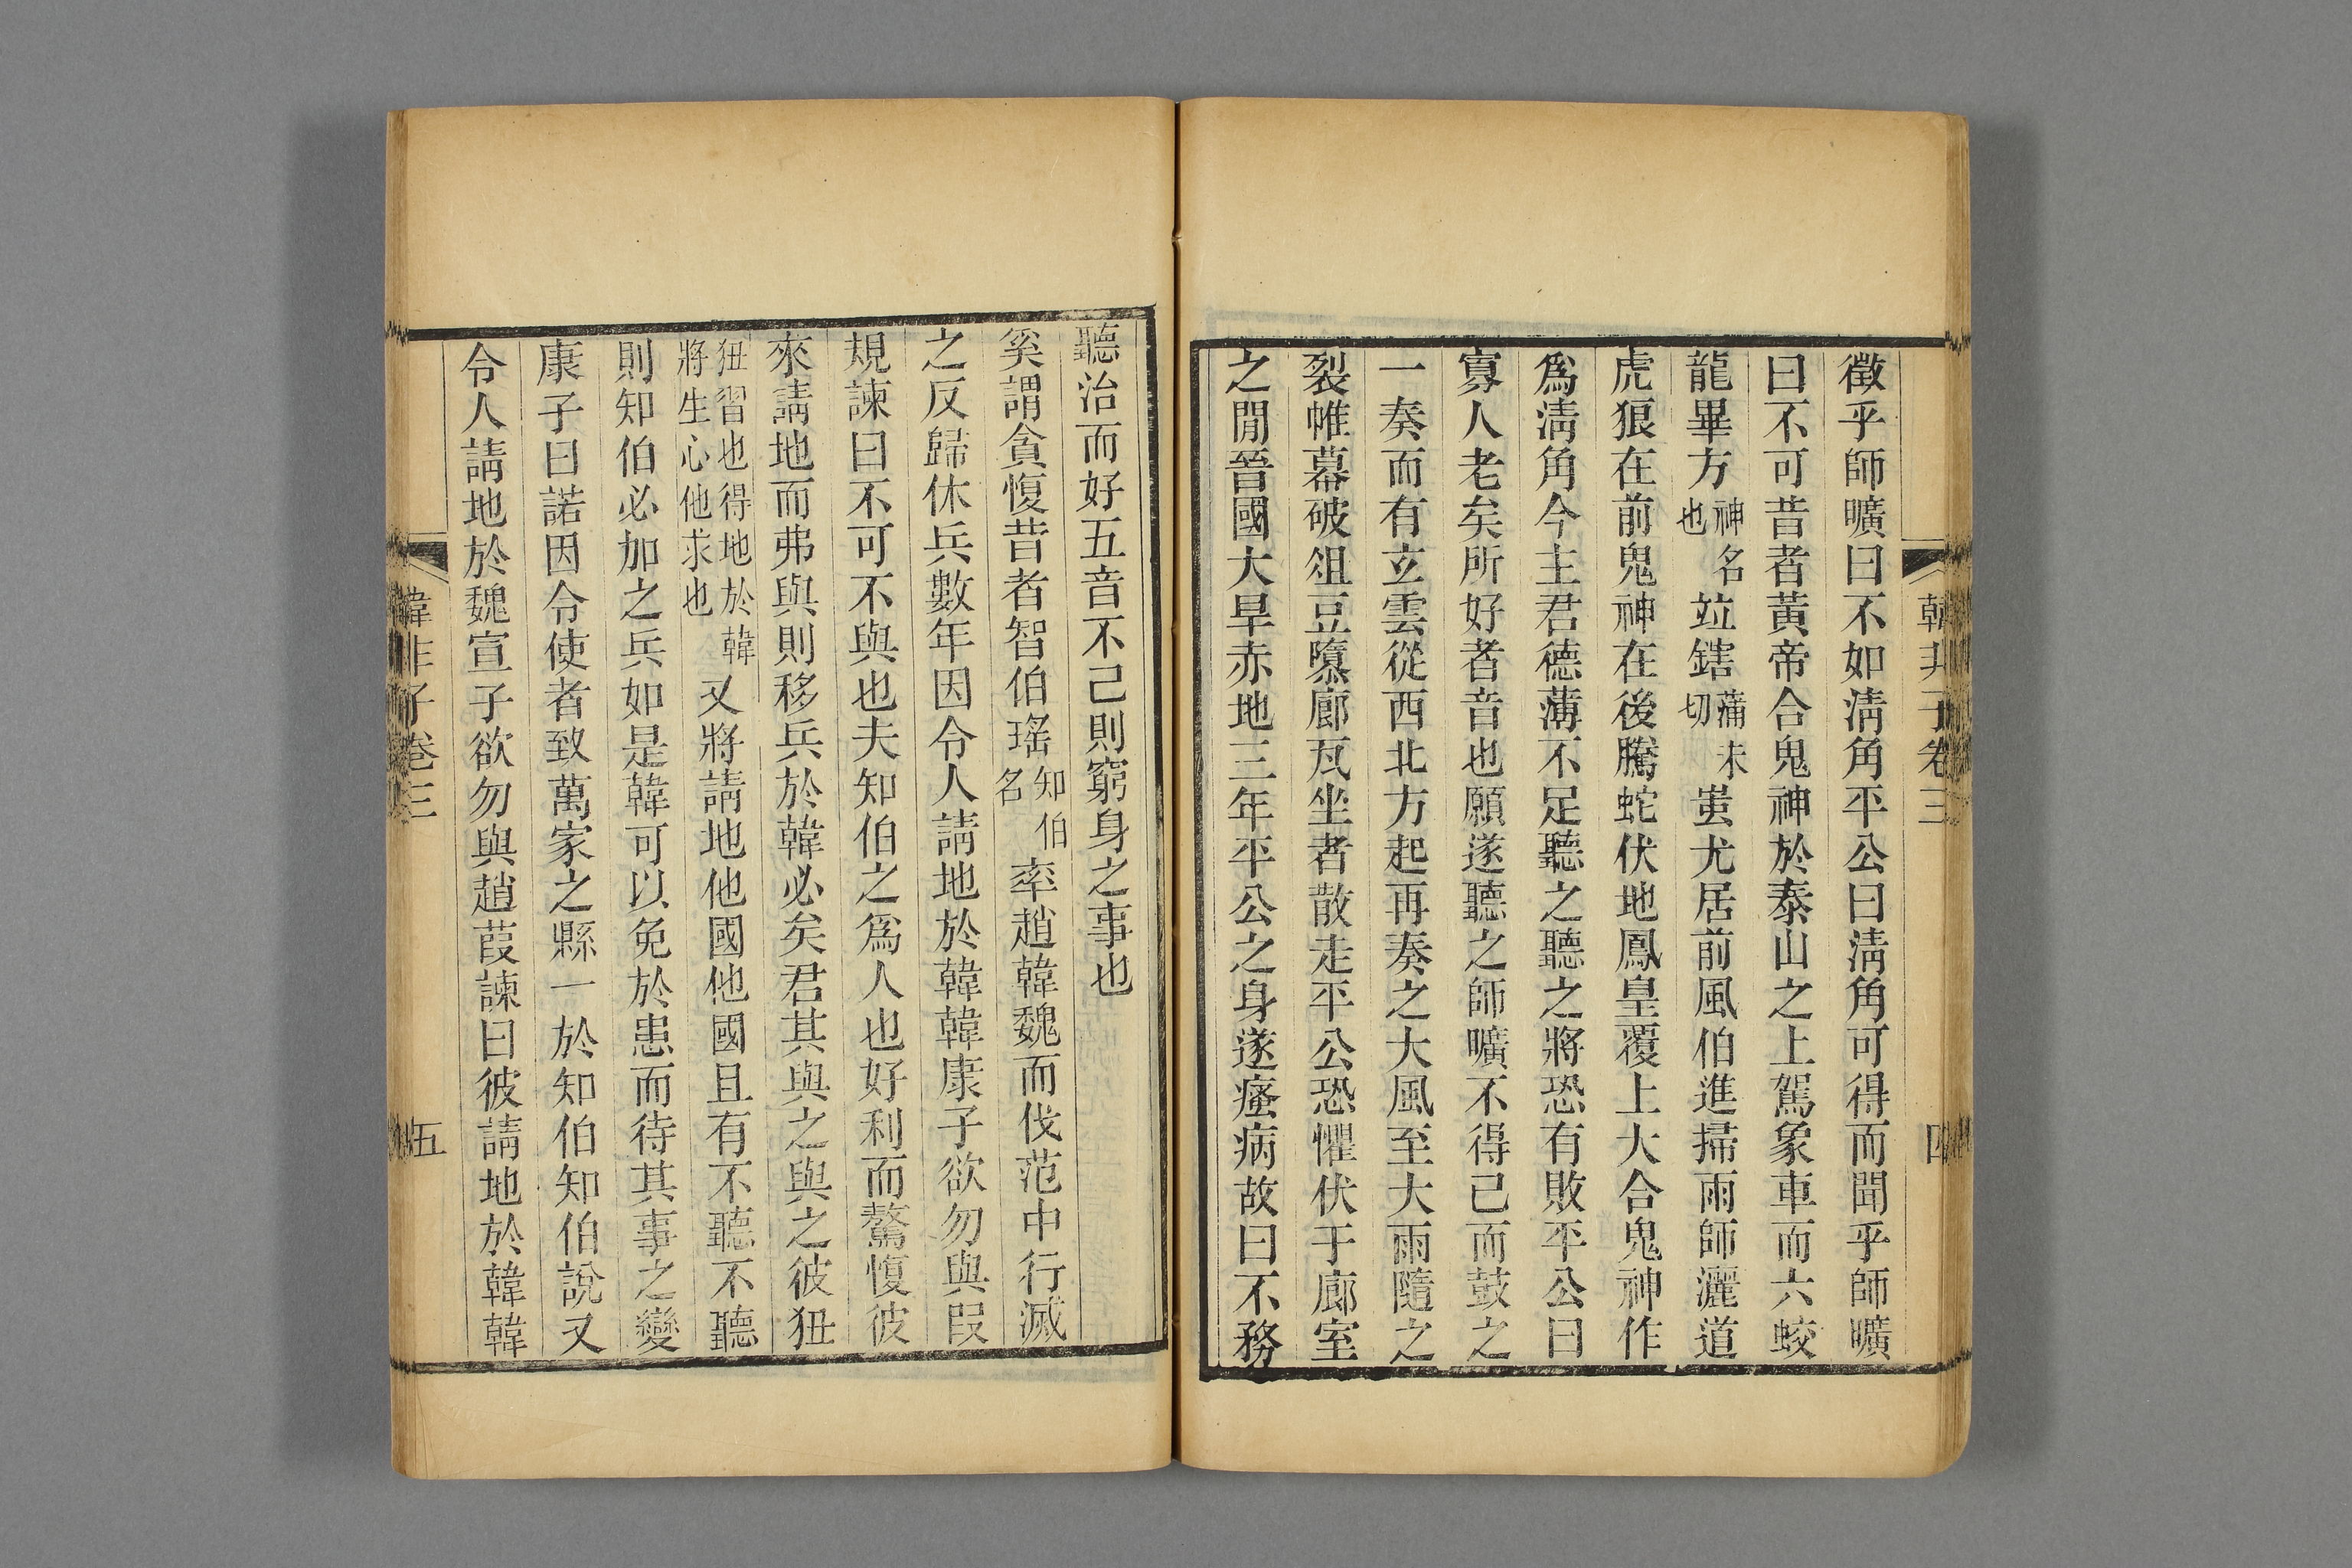 韓非子卷三
四
徵乎師曠曰不如淸角平公曰淸角可得而聞乎師曠
曰不可昔者黃帝合鬼神於泰山之上駕象車而六蛟
龍畢方神名也竝鎋蒲末切蚩尤居前風伯進掃雨師灑道
虎狼在前鬼神在後騰蛇伏地鳳皇覆上大合鬼神作
爲淸角今主君德薄不足聽之聽之將恐有敗平公曰
寡人老矣所好者音也願遂聽之師曠不得已而鼓之
一奏而有玄雲從西北方起再奏之大風至大雨隨之
裂帷幕破俎豆隳廊瓦坐者散走平公恐懼伏于廊室
之閒晉國大旱赤地三年平公之身遂瘙病故曰不務
聽治而好五音不已則窮身之事也
奚謂貪愎昔者智伯瑤知伯名率趙韓魏而伐范中行滅
之反歸休兵數年因令人請地於韓韓康子欲勿與叚
規諫曰不可不與也夫知伯之爲人也好利而驁愎彼
來請地而弗與則移兵於韓必矣君其與之與之彼狃
狃習也得地於韓將生心他求也又將請地他國他國且有不聽不聽
則知伯必加之兵如是韓可以免於患而待其事之變
康子曰諾因令使者致萬家之縣一於知伯知伯說又
令人請地於魏宣子欲勿與趙葭諫曰彼請地於韓韓
韓非子卷三
五